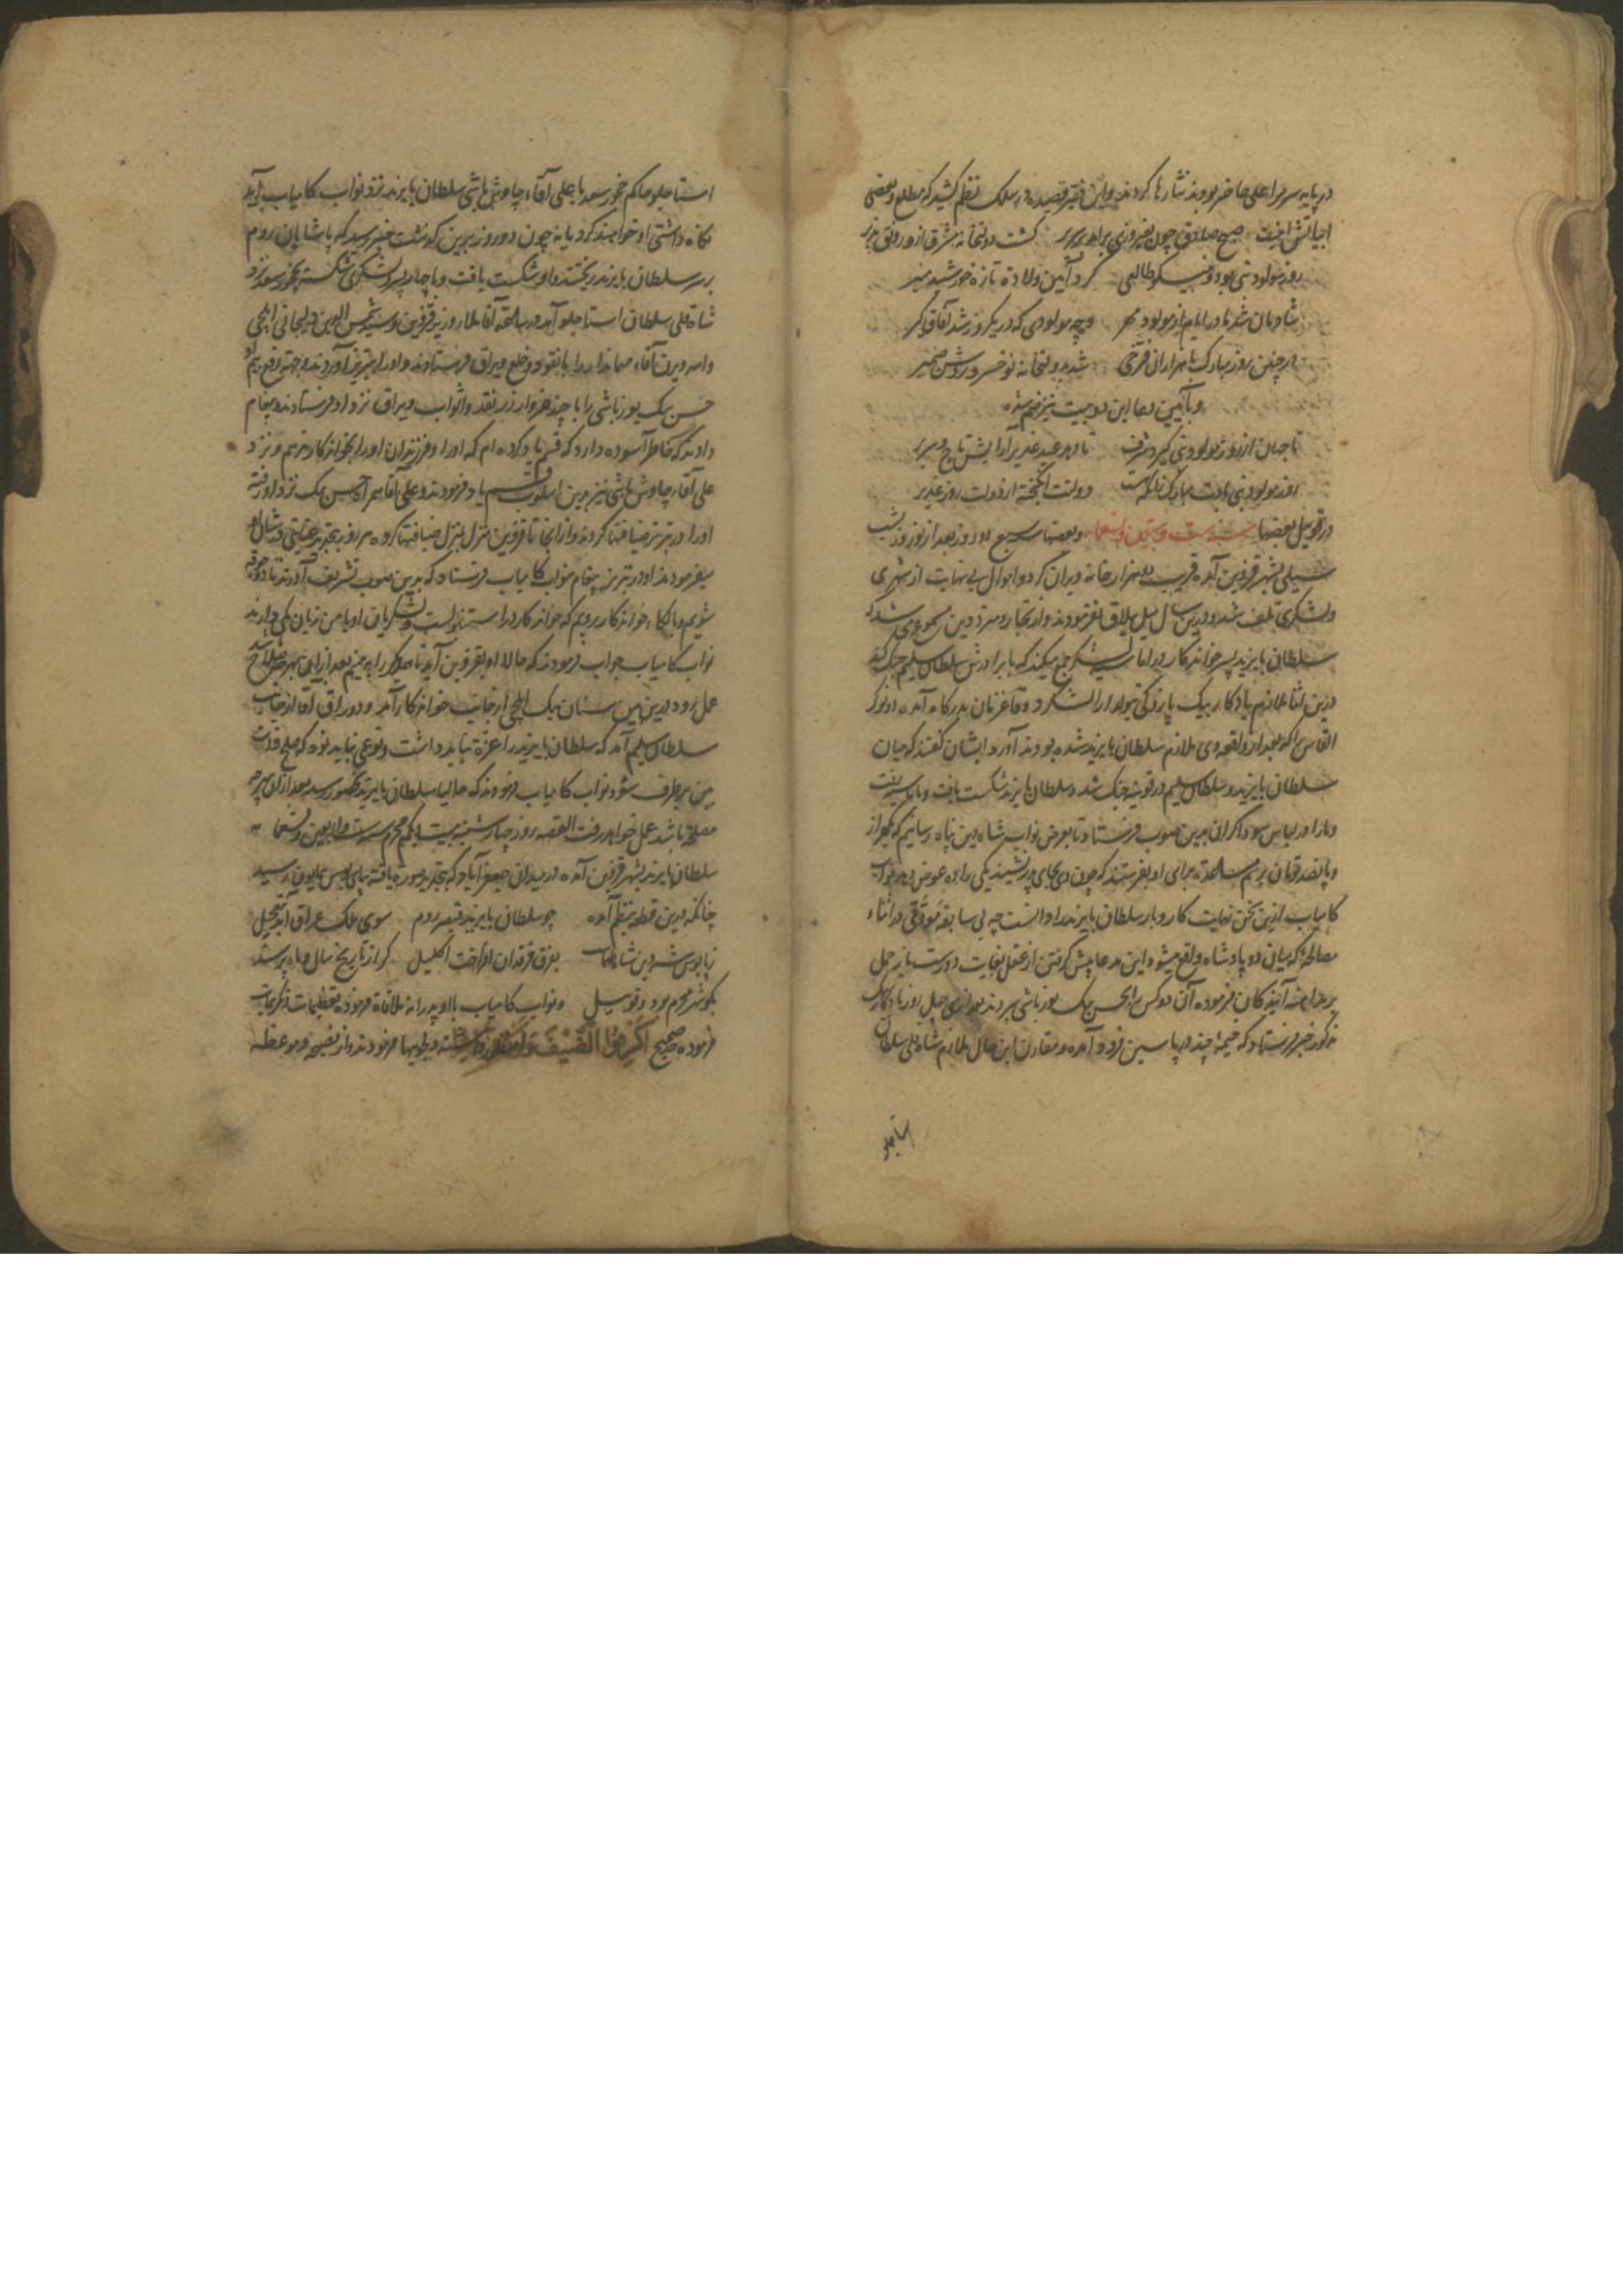 در پایه سریر اعلی حاضر بودند نثارها کردند و این فقیر قصیده در سلک نظم کشید که مطلع و بعضی
ابیاتش اینست صبح صادق چون بفیروزی برآمد بر سریر گشت دولتخانه مشرق از و رونق پذیر
روز مولود نبی بود و نیکو طالعی کرد آیین ولادة تازه خورشید منیر
شادمان شد مادر ایام از مولود مهر وه چه مولودی که در یکروز شد آفاق گیر
در چنین روز مبارک با هزاران فرخی شد بدولتخانه نو خسرو روشن ضمیر
و بآیین دعا این دو بیت نیز ضم شده
تا جهان از روز مولود نبی گیرد شرف تا دهد عید غدیر آرایش تاج و سریر
روز مولود نبی بادت مبارک
دولت روز غدیر
در قویل بعضیها سنه ست و ستین و تسعمائه و بعضیها سبع دو روز بعد از نوروز بشب
سیلی بشهر قزوین آمده قریب دو هزار خانه ویران کرد و اموال بی نهایت از شهری
و لشکری تلف شد و درین سال میل ییلاق نفرمودند و از تجار و مترددین مسموع می شد که
سلطان بایزید پسر خواندکار در اماسیه لشکر جمع میکند که با برادرش سلطان سلیم جنگ کند
درین اثنا ملازم یادکار بیک پازوکی
بدرکاه آمده دو نوکر
القاس را که بعد از واقعه وی ملازم سلطان بایزید شده بودند آورد ایشان گفتند که میان
سلطان بایزید و سلطان سلیم در قونیه جنگ شد و سلطان بایزید شکست یافت و باماسیه رفت
و ما را در لباس سوداکران بدین صوب فرستاد تا بعرض نواب شاه دین پناه رسانیم که یکهزار
و پانصد تومان برسم مساعدة برای او بفرستند که چون وی بجای پدر نشیند یکی را ده عوض دهد نواب
کامیاب ازین سخن نهایت کار و بار سلطان بایزید را دانست چه بی سابقه معرفتی در اثناء
مصالحه که میان دو پادشاه واقع میشود این مدعا پیش کرفتن از عقل بغایت دورست باز حمل
فرموده آن دو کس را بحسن بیک یوزباشی سپردند بعد از چهل روز یادکار بیک
مذکور خبر فرستاد که خیمه چند در پاسین فرود آمده و مقارن این حال ملازم شاه قلی سلطان
استاجلو
استاجلو حاکم چخور سعد با علی آقاء چاوش باشی سلطان بایزید نزد نواب کامیاب آمد
که آیا نگاه داشتی او خواهند کرد یا نه چون دو روز برین گذشت خبر رسید که پاشایان روم
بر سر سلطان بایزید ریختند و او شکست یافت و با چهار پسر و لشکری شکسته بچخور سعد نزد
شاه قلی سلطان استاجلو آمد
آقا ملا وزیر قزوین و سید شمس الدین دلیجانی ایلچی
و
آقاء مهماندار را با نقود و خلع و یراق فرستادند و او را بتبریز آوردند و جهته رفع بیم او
حسن بیک یوزباشی را با چند هزار زر نقد و اثواب و یراق نزد او فرستادند و پیغام
دادند که خاطر آسوده دارد که قسم یاد کرده ام که او را و فرزندان او را بخواندکار ندهم و نزد
علی آقاء چاوش باشی نیز بدین اسلوب قسم یاد فرمودند و علی آقا همراه حسن بیک نزد او رفته
او را در تبریز ضیافتها کردند و از آنجا تا قزوین منزل بمنزل ضیافتها کرده هر روز بتجدید عنایتی در شان او
میفرمودند او در تبریز پیغام بنواب کامیاب فرستاد که بدین صوب تشریف آورند تا
شویم و بالکاء خواندکار رویم که خواندکار در استنبولست و لشکریان او با من زبان یکی دارند
نواب کامیاب جواب فرمودند که حالا او بقزوین آید تا همدیگر را به بینیم بعد از آن بهر چه صلاح باشد
عمل رود درین بین سنان بیک ایلچی از جانب خواندکار آمد و دوراق آقا از جانب
سلطان سلیم آمد که سلطان بایزید را عزة نباید داشت و نوعی نباید نمود که صلح قدات
بین بر طرف شود نواب کامیاب فرمودند که حالیا سلطان بایزید بحضور رسد بعد از آن بهر چه
مصلحة باشد عمل خواهد رفت القصه روز چهارشنبه بیست و یکم محرم سنه
و تسعمائه
سلطان بایزید بشهر قزوین آمده در میدان جعفرآباد که بتجدید صورة یافته بپای بوس همایون رسید
چنانکه درین قطعه بنظم آمده چو سلطان بایزید قیصر روم سوی ملک عراق آمد بتعجیل
ز پابوس شه دین شاه طهماسب بفرق فرقدان افراخت اکلیل گر از تاریخ سال و ماه پرسند
بگو شهر محرم بود و
ئیل و نواب کامیاب با او پدرانه ملاقاة فرموده تعظیمات و تکریمات
فرموده
اکرموا الضیف
و دلجویها فرمودند و از نصیحه و موعظه